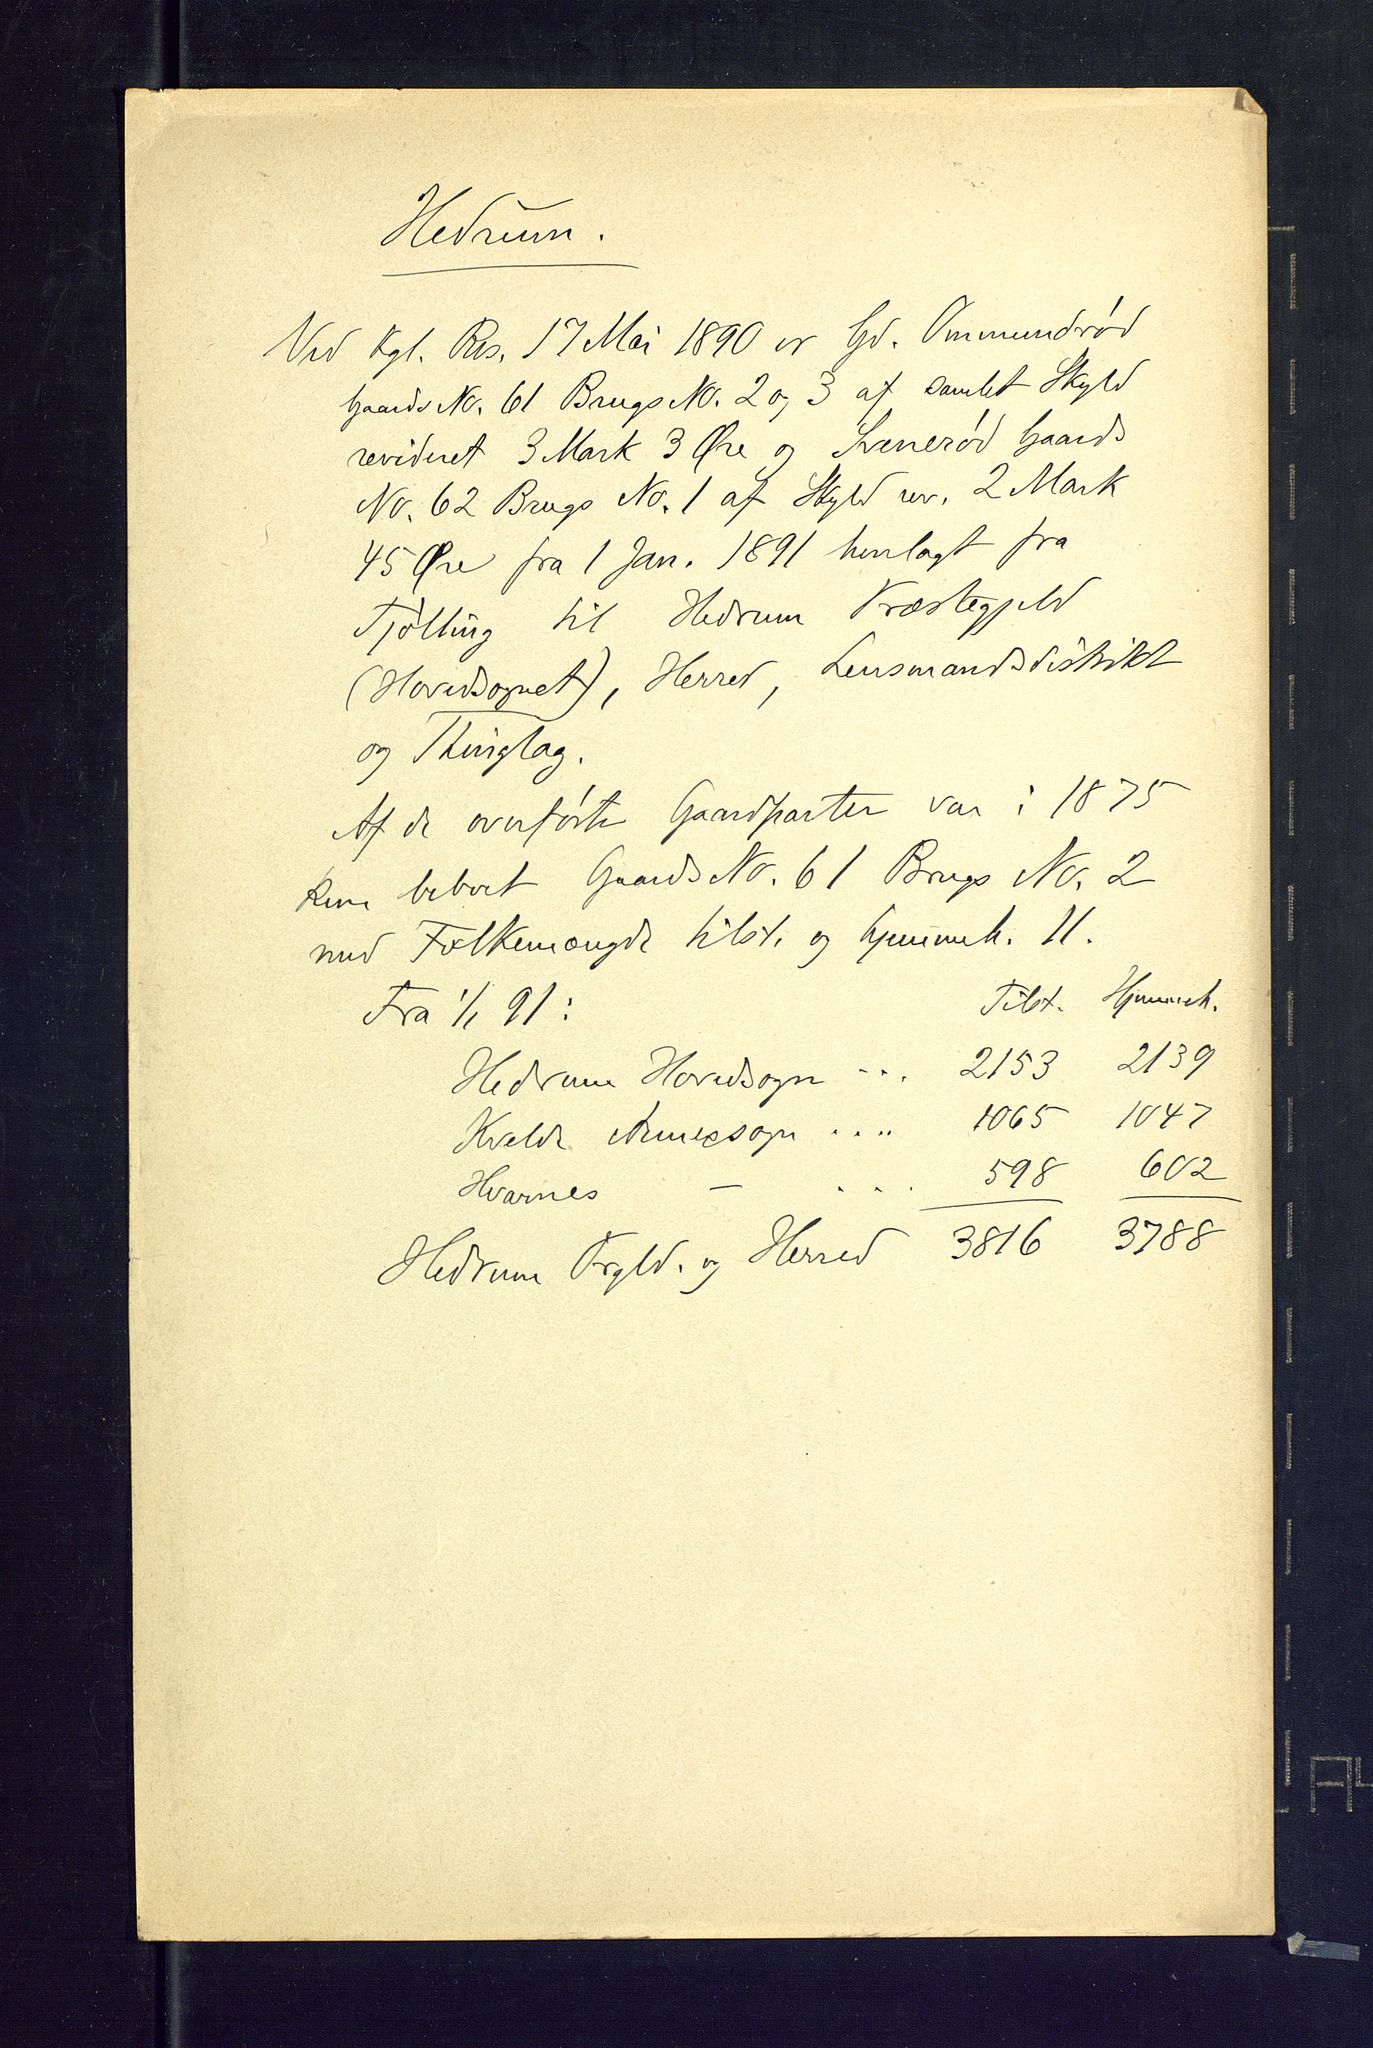 Hedrum.
Ved kgl. Res. 17 Mai 1890 er Gd. Ommundrød
Gaards No. 61 Brugs No. 2 og 3 af samlet Skyld
revideret 3 Mark 3 Øre og Svenerød Gaards
No. 62 Brugs No. 1 af Skyld rev. 2 Mark
45 Øre fra 1 Jan. 1891 henlagt fra
Tjølling til Hedrum Præstegjeld
(Hovedsognet), Herred, Lensmandsdistrikt
og Thinglag.
Af de overførte Gaardparter var i 1875
kun beboet Gaards No. 61 Brugs No. 2
med Folkemængde tilst. og hjemmeh. 11.
Fra 1/1 91: Tilst. Hjemmeh.
Hedrum Hovedsogn ... 2153 2139
Kvelde Annexsogn .... 1065 1047
Hvarnes — ... 598 602
Hedrum Prgld. og Herred 3816 3788
A4